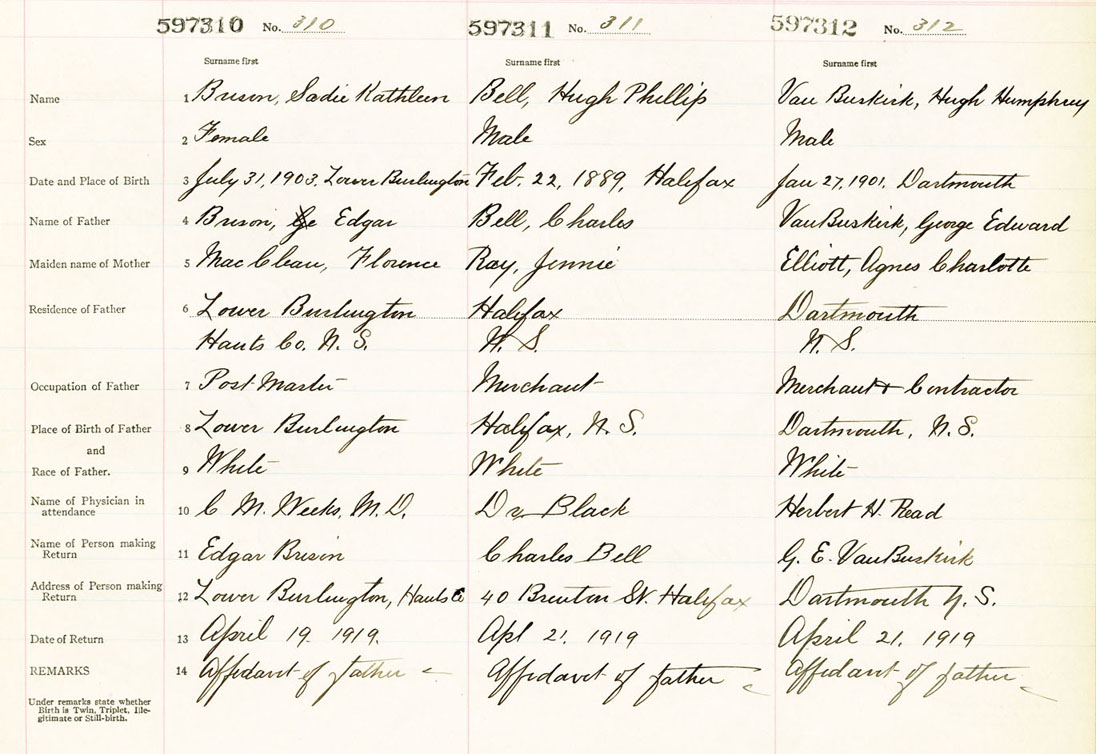 597310 No. 310 597311 No. 311 597312 No. 312
Surname first Surname first Surname first
Name 1 Brison, Sadie Kathleen Bell, Hugh Phillip Van Buskirk, Hugh Humphrey
Sex 2 Female Male Male
Date and Place of Birth 3 July 31, 1903. Lower Burlington Feb. 22, 1889, Halifax Jan 27, 1901. Dartmouth
Name of Father 4 Brison, Edgar Bell, Charles VanBuskirk, George Edward
Maiden name of Mother 5 MacClean, Florence Ray, Jennie Elliott, Agnes Charlotte
Residence of Father 6 Lower Burlington Halifax Dartmouth
Hants Co. N. S. N. S. N. S.
Occupation of Father 7 Post Master Merchant Merchant & Contractor
Place of Birth of Father 8 Lower Burlington Halifax, N. S. Dartmouth, N. S.
and
Race of Father. 9 White White White
Name of Physician in
attendance 10 C M. Weeks, M. D. Dr Black Herbert H. Read
Name of Person making
Return 11 Edgar Brison Charles Bell G. E. VanBuskirk
Address of Person making
Return 12 Lower Burlington, Hants Co 40 Brenton St. Halifax Dartmouth N. S.
Date of Return 13 April 19 1919. Apl 21. 1919 April 21. 1919
REMARKS 14 Affidavit of father Affidavit of father Affidavit of father
Under remarks state whether
Birth is Twin, Triplet, Ille-
gitimate or Still-birth.